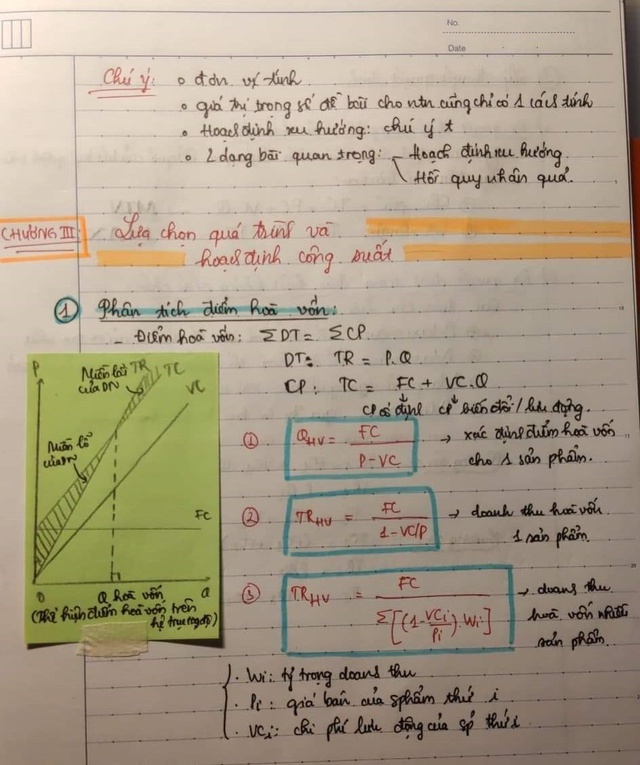 No.
Date
Chú ý: o đơn vị tính
o giá trị trọng số đề bài cho ntn cũng chỉ có 1 cách tính
o Hoạch định xu hướng: chú ý t
o 2 dạng bài quan trọng: Hoạch định xu hướng
Hồi quy nhân quả.
CHƯƠNG III: Lựa chọn quá trình và
hoạch định công suất
① Phân tích điểm hoà vốn:
- Điểm hoà vốn: ΣDT = ΣCP
DT: TR = P.Q
CP: TC = FC + VC.Q
CP cố định CP biến đổi/lưu động.
① Q_HV = FC / (P-VC) → xác định điểm hoà vốn
cho 1 sản phẩm.
② TR_HV = FC / (1-VC/P) → doanh thu hoà vốn
1 sản phẩm
③ TR_HV = FC / Σ[(1-VCi/Pi).Wi] → doanh thu
hoà vốn nhiều
sản phẩm.
. Wi: tỷ trọng doanh thu
. Pi: giá bán của sphẩm thứ i
. VCi: chi phí lưu động của sp thứ i
P
Miền lãi TR TC
của DN
VC
Miền lỗ
của DN
FC
0 Q hoà vốn Q
(Thể hiện điểm hoà vốn trên
hệ trục toạ độ)